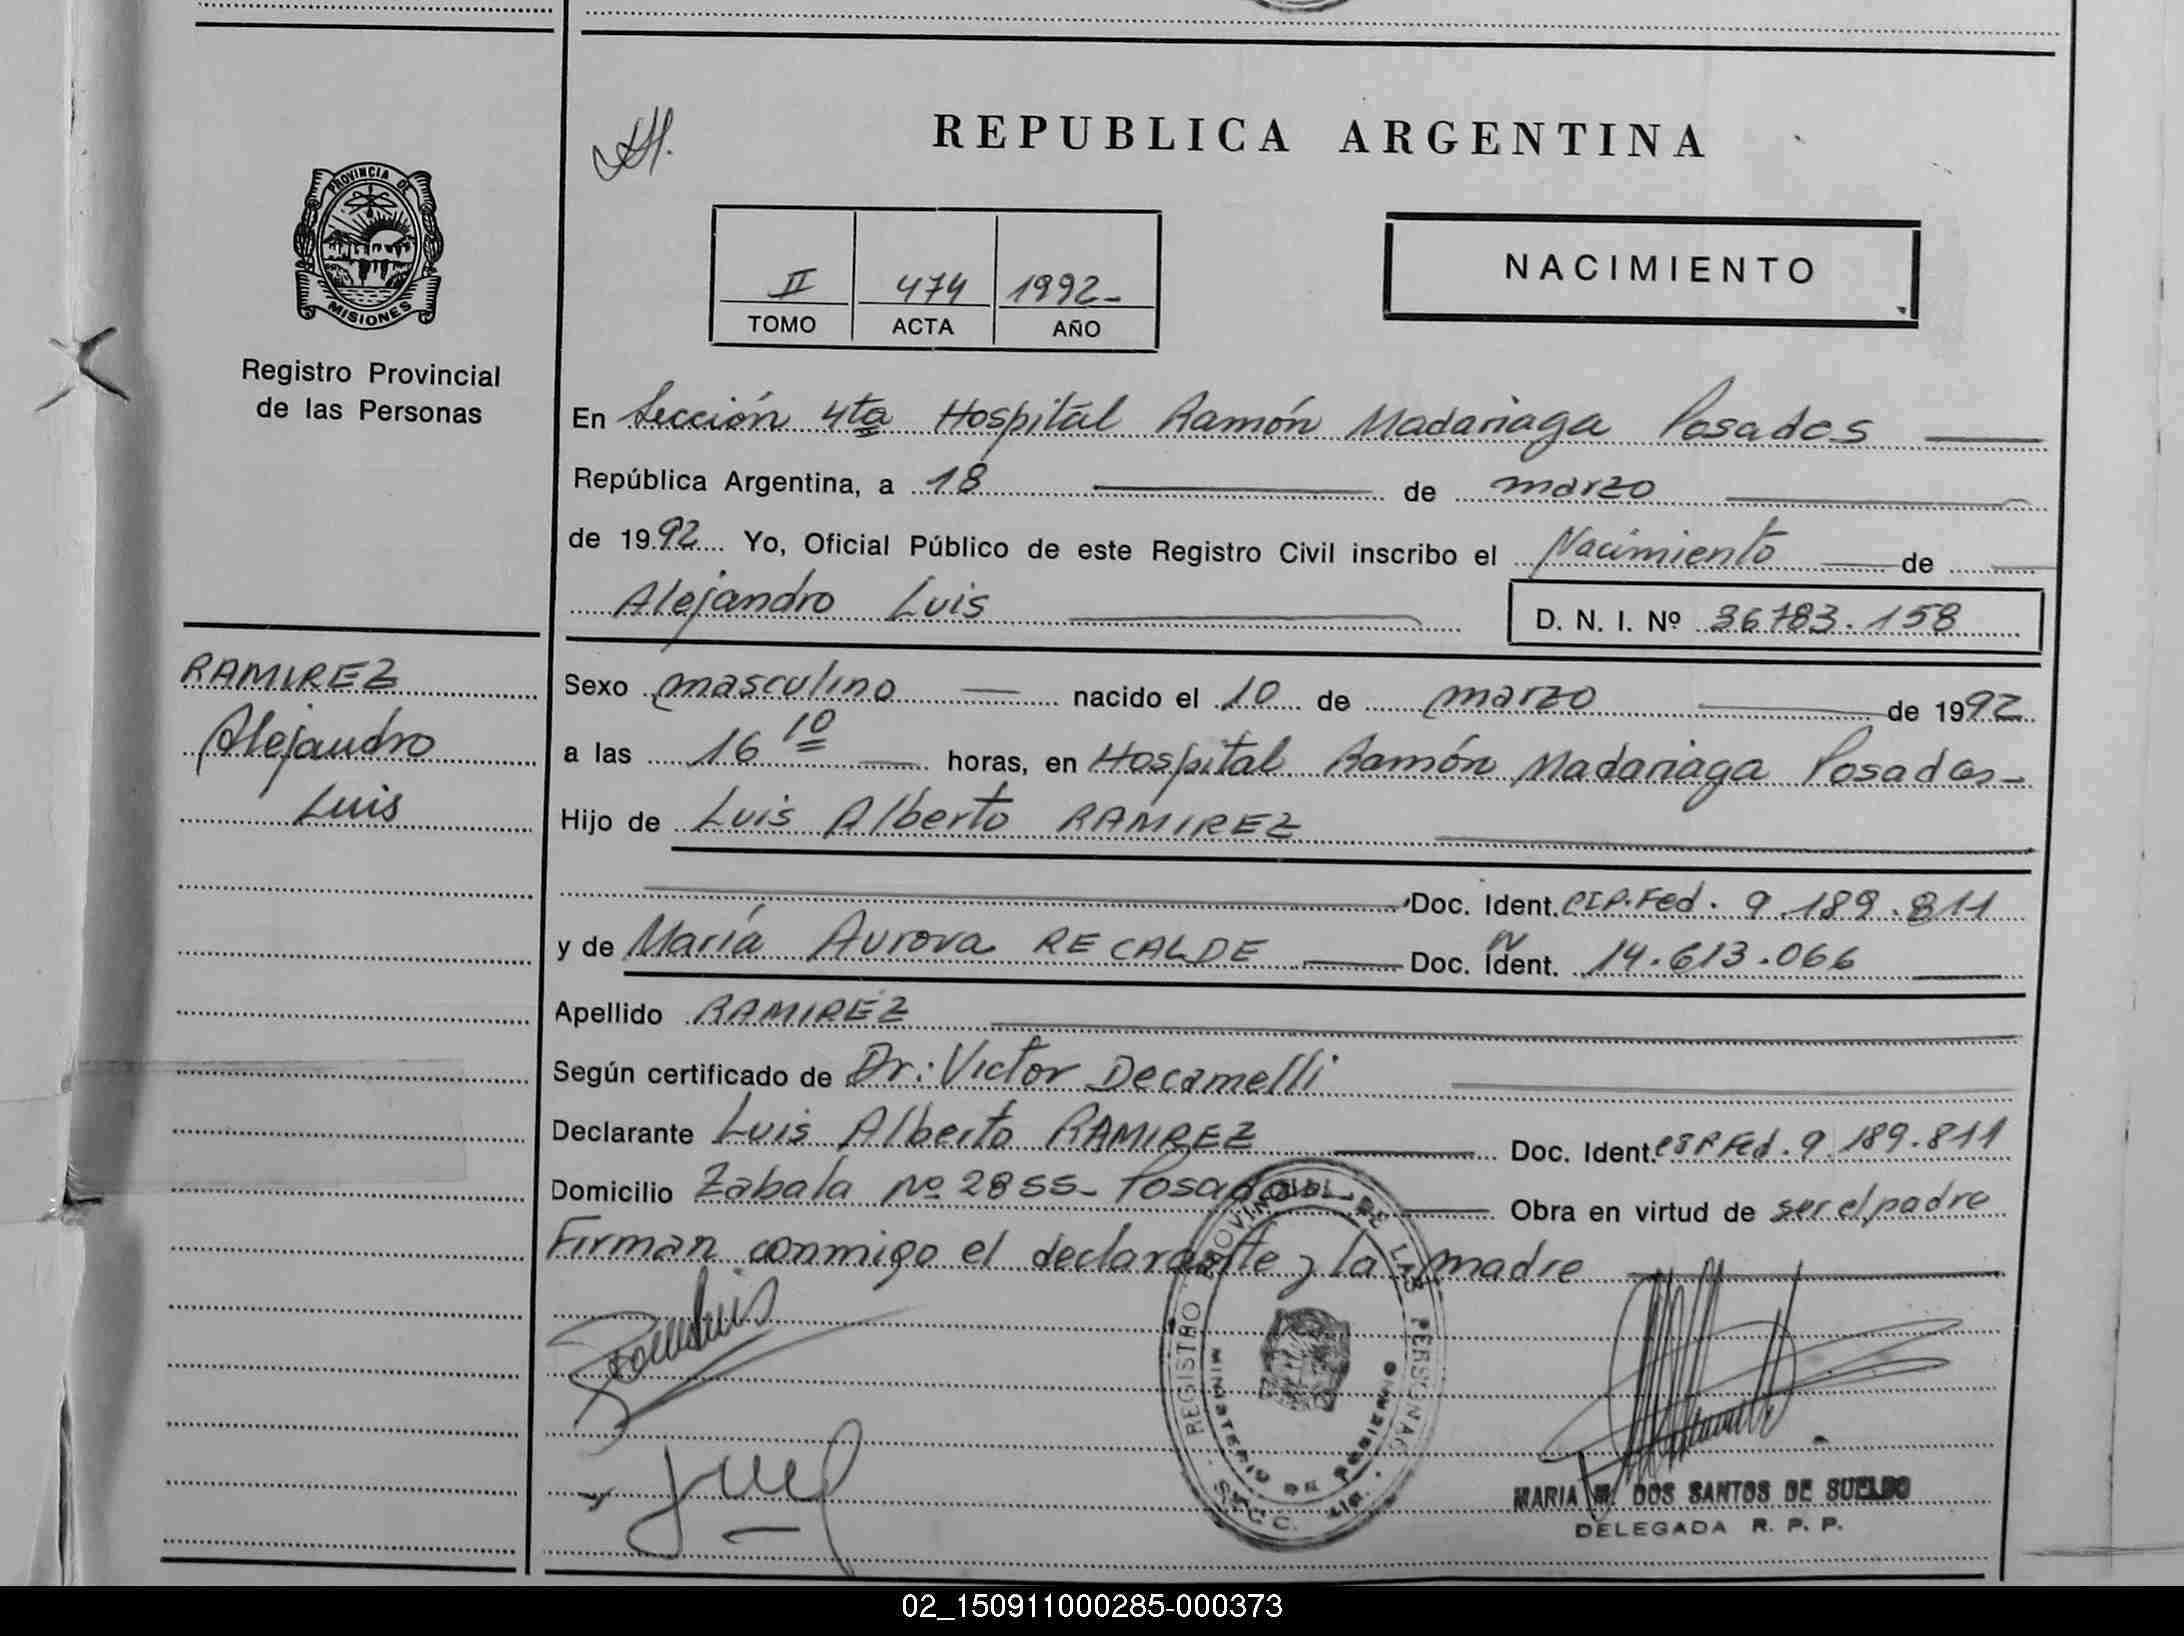 REPUBLICA ARGENTINA
PROVINCIA DE
MISIONES
Registro Provincial
de las Personas
II 474 1992-
TOMO ACTA AÑO
NACIMIENTO
En Sección 4ta Hospital Ramón Madariaga Posadas
República Argentina, a 18 de marzo
de 1992 Yo, Oficial Público de este Registro Civil inscribo el Nacimiento de
Alejandro Luis D. N. I. Nº 36783.158
RAMIREZ
Alejandro
Luis
Sexo masculino nacido el 10 de marzo de 1992
a las 16 10 horas, en Hospital Ramón Madariaga Posadas-
Hijo de Luis Alberto RAMIREZ
Doc. Ident. CIP.Fed. 9.189.811
y de María Aurora RECALDE Doc. Ident. 14.613.066
Apellido RAMIREZ
Según certificado de Dr: Victor Decamelli
Declarante Luis Alberto RAMIREZ Doc. Ident. CIP Fed. 9.189.811
Domicilio Zabala Nº 2855- Posadas Obra en virtud de ser el padre
Firman conmigo el declarante y la madre
REGISTRO PROVINCIAL DE LAS PERSONAS
MINISTERIO DE GOBIERNO
MARIA DOS SANTOS DE SUELDO
DELEGADA R. P. P.
02_150911000285-000373